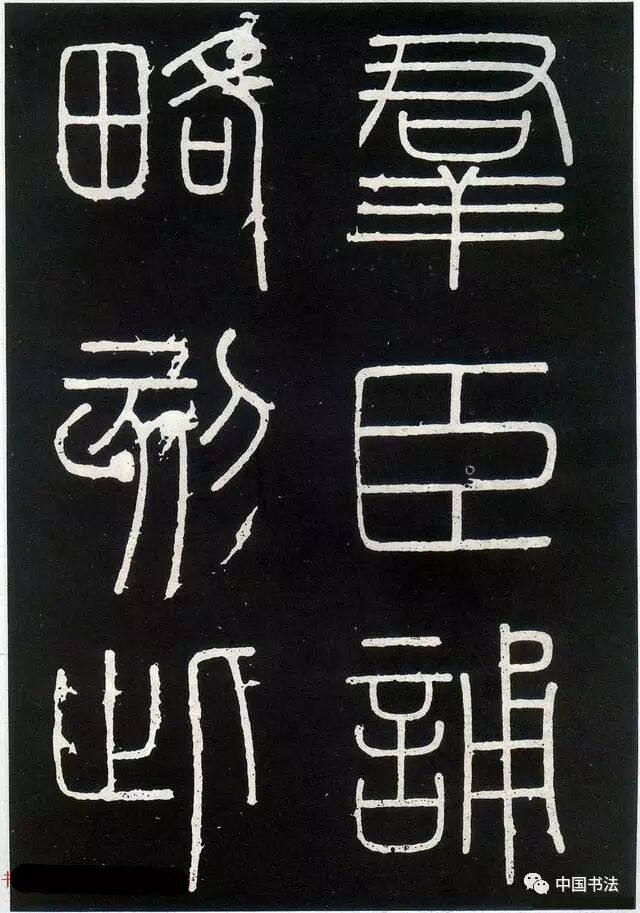 羣臣誦
略刻此
中国书法